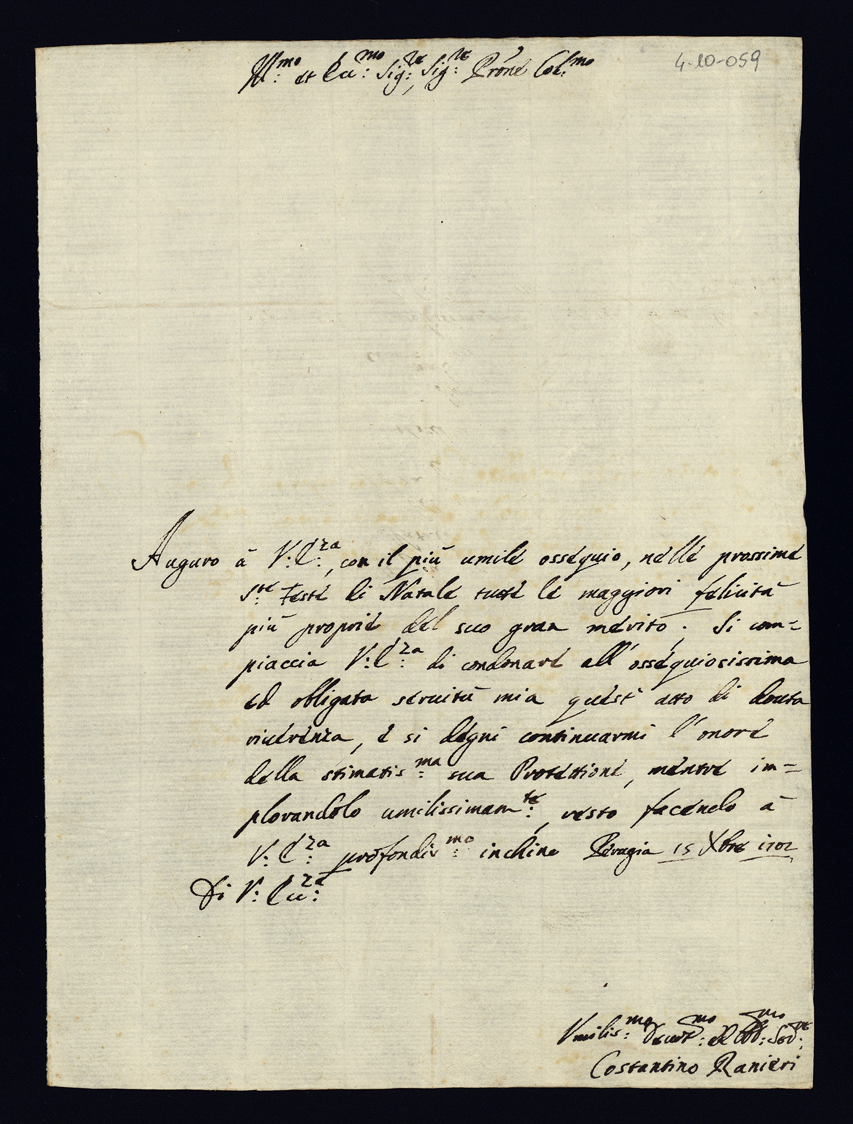 Ill:mo et Ecc:mo Sig:re Sig:re Prône Col:mo
4-10-059
Auguro à V:E:za, con il più umile ossequio, nelle prossime
S:te Feste di Natale tutte le maggiori felicità
più proprie del suo gran merito. Si com=
piaccia V:E:za di condonare all'ossequiosissima
ed obligata servitù mia questi atto di douta
riverenza, è si degni continuarmi l'onore
della stimatis:ma sua Protettione, mentre im=
plorandolo umilissimam:te, resto facendo à
V:E:za profondis:mo inchino Perugia 15 Xbre 1702
Di V:Ecc:za
Vmilis:mo Deuot:mo et Obb:mo Ser:re
Costantino Ranieri